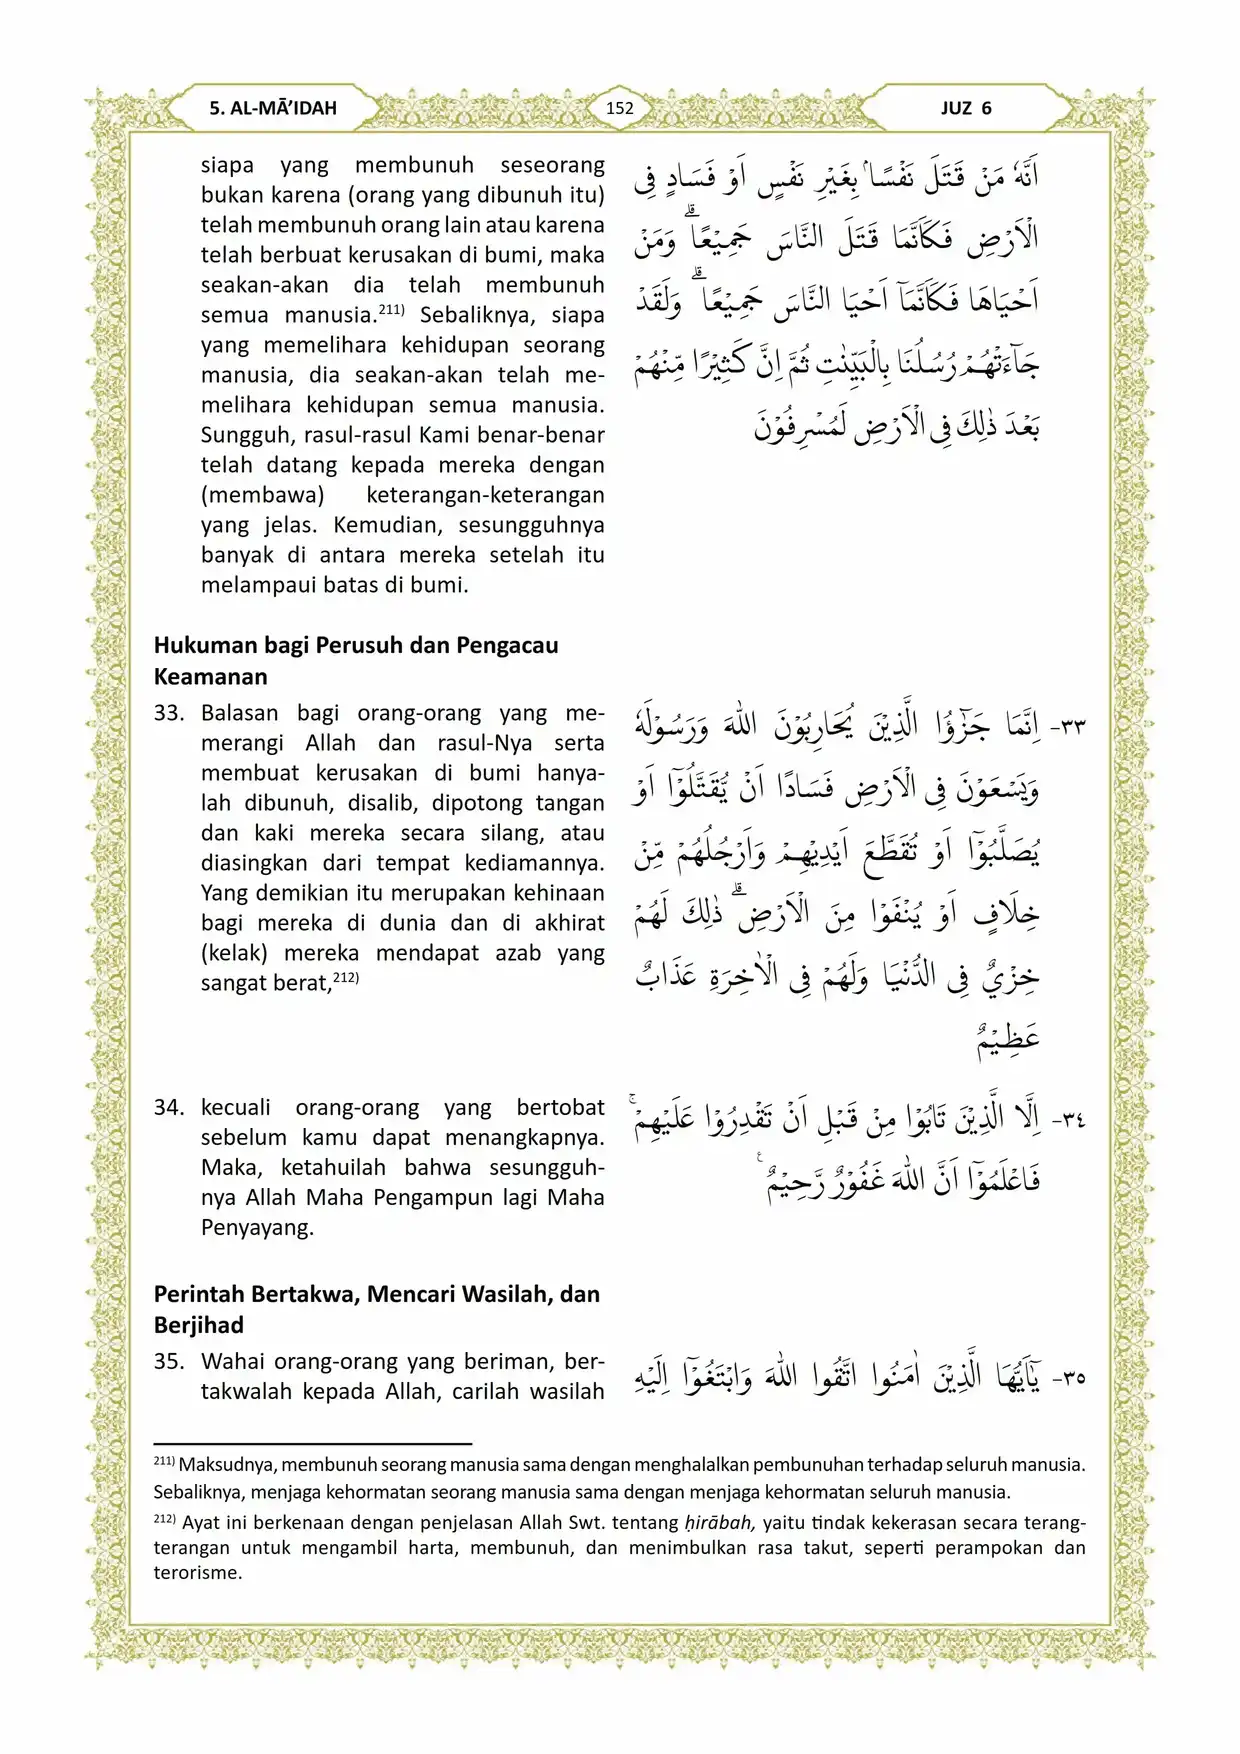 5. AL-MĀ’IDAH
152
JUZ 6
siapa yang membunuh seseorang
bukan karena (orang yang dibunuh itu)
telah membunuh orang lain atau karena
telah berbuat kerusakan di bumi, maka
seakan-akan dia telah membunuh
semua manusia.211) Sebaliknya, siapa
yang memelihara kehidupan seorang
manusia, dia seakan-akan telah me-
melihara kehidupan semua manusia.
Sungguh, rasul-rasul Kami benar-benar
telah datang kepada mereka dengan
(membawa) keterangan-keterangan
yang jelas. Kemudian, sesungguhnya
banyak di antara mereka setelah itu
melampaui batas di bumi.
اَنَّهٗ مَنْ قَتَلَ نَفْسًاۢ بِغَيْرِ نَفْسٍ اَوْ فَسَادٍ فِى
الْاَرْضِ فَكَاَنَّمَا قَتَلَ النَّاسَ جَمِيْعًاۗ وَمَنْ
اَحْيَاهَا فَكَاَنَّمَآ اَحْيَا النَّاسَ جَمِيْعًاۗ وَلَقَدْ
جَاۤءَتْهُمْ رُسُلُنَا بِالْبَيِّنٰتِ ثُمَّ اِنَّ كَثِيْرًا مِّنْهُمْ
بَعْدَ ذٰلِكَ فِى الْاَرْضِ لَمُسْرِفُوْنَ
Hukuman bagi Perusuh dan Pengacau
Keamanan
33. Balasan bagi orang-orang yang me-
merangi Allah dan rasul-Nya serta
membuat kerusakan di bumi hanya-
lah dibunuh, disalib, dipotong tangan
dan kaki mereka secara silang, atau
diasingkan dari tempat kediamannya.
Yang demikian itu merupakan kehinaan
bagi mereka di dunia dan di akhirat
(kelak) mereka mendapat azab yang
sangat berat,212)
٣٣- اِنَّمَا جَزٰۤؤُا الَّذِيْنَ يُحَارِبُوْنَ اللّٰهَ وَرَسُوْلَهٗ
وَيَسْعَوْنَ فِى الْاَرْضِ فَسَادًا اَنْ يُّقَتَّلُوْٓا اَوْ
يُصَلَّبُوْٓا اَوْ تُقَطَّعَ اَيْدِيْهِمْ وَاَرْجُلُهُمْ مِّنْ
خِلَافٍ اَوْ يُنْفَوْا مِنَ الْاَرْضِۗ ذٰلِكَ لَهُمْ
خِزْيٌ فِى الدُّنْيَا وَلَهُمْ فِى الْاٰخِرَةِ عَذَابٌ
عَظِيْمٌ
34. kecuali orang-orang yang bertobat
sebelum kamu dapat menangkapnya.
Maka, ketahuilah bahwa sesungguh-
nya Allah Maha Pengampun lagi Maha
Penyayang.
٣٤- اِلَّا الَّذِيْنَ تَابُوْا مِنْ قَبْلِ اَنْ تَقْدِرُوْا عَلَيْهِمْۚ
فَاعْلَمُوْٓا اَنَّ اللّٰهَ غَفُوْرٌ رَّحِيْمٌ ࣖ
Perintah Bertakwa, Mencari Wasilah, dan
Berjihad
35. Wahai orang-orang yang beriman, ber-
takwalah kepada Allah, carilah wasilah
٣٥- يٰٓاَيُّهَا الَّذِيْنَ اٰمَنُوا اتَّقُوا اللّٰهَ وَابْتَغُوْٓا اِلَيْهِ
211) Maksudnya, membunuh seorang manusia sama dengan menghalalkan pembunuhan terhadap seluruh manusia.
Sebaliknya, menjaga kehormatan seorang manusia sama dengan menjaga kehormatan seluruh manusia.
212) Ayat ini berkenaan dengan penjelasan Allah Swt. tentang ḥirābah, yaitu tindak kekerasan secara terang-
terangan untuk mengambil harta, membunuh, dan menimbulkan rasa takut, seperti perampokan dan
terorisme.